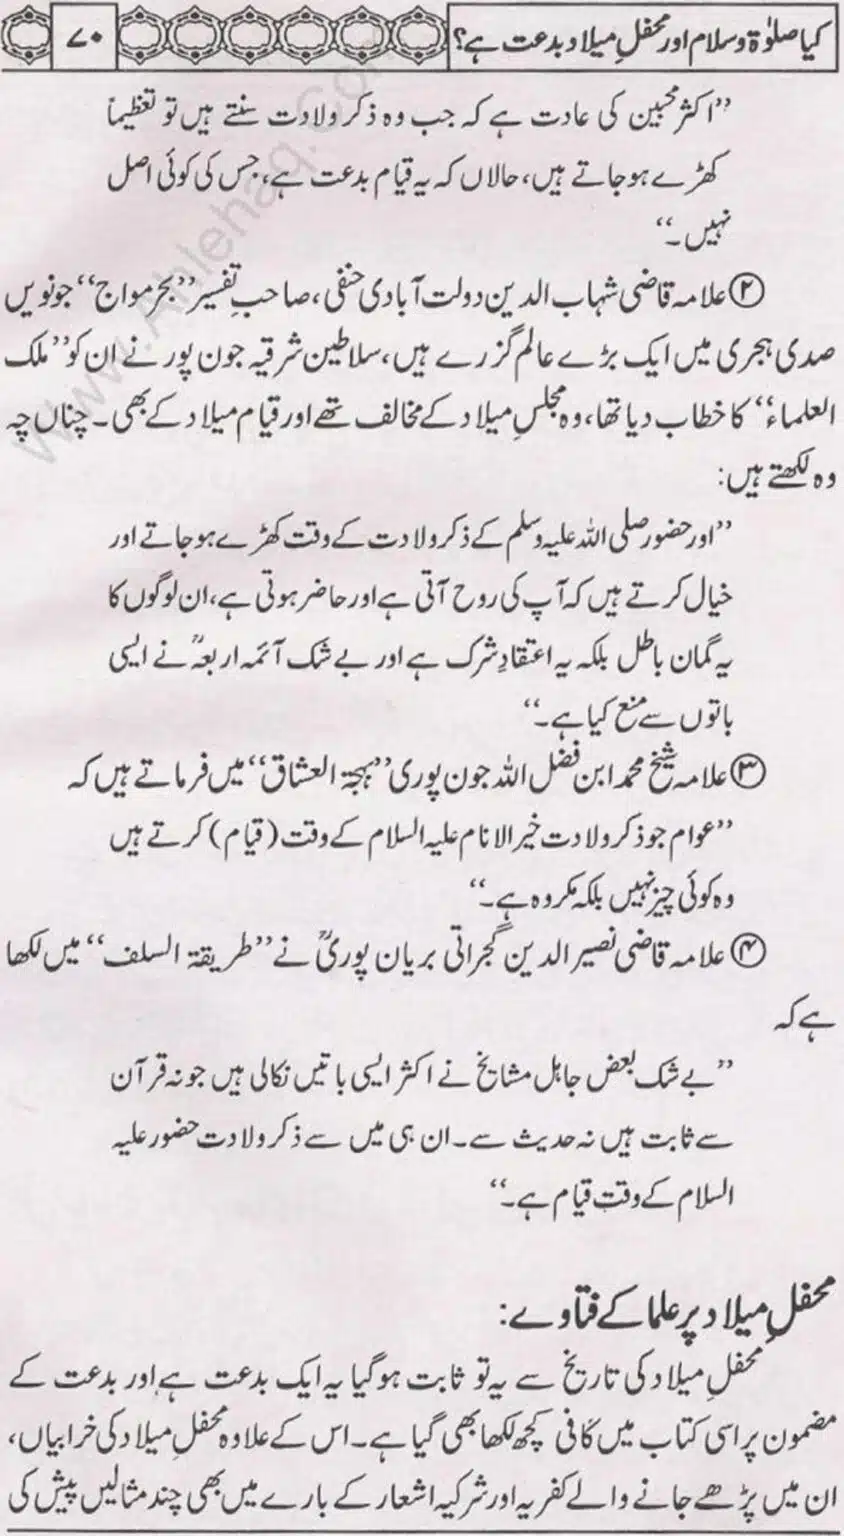 کیا صلوٰۃ و سلام اور محفلِ میلاد بدعت ہے؟
۷۰
”اکثر محبین کی عادت ہے کہ جب وہ ذکر ولادت سنتے ہیں تو تعظیماً
کھڑے ہوجاتے ہیں، حالاں کہ یہ قیام بدعت ہے، جس کی کوئی اصل
نہیں۔“
② علامہ قاضی شہاب الدین دولت آبادی حنفی، صاحبِ تفسیر ”بحر مواج“ جو نویں
صدی ہجری میں ایک بڑے عالم گزرے ہیں، سلاطین شرقیہ جون پور نے ان کو ”ملک
العلماء“ کا خطاب دیا تھا، وہ مجلسِ میلاد کے مخالف تھے اور قیام میلاد کے بھی۔ چناں چہ
وہ لکھتے ہیں:
”اور حضور صلی اللہ علیہ وسلم کے ذکر ولادت کے وقت کھڑے ہوجاتے اور
خیال کرتے ہیں کہ آپ کی روح آتی ہے اور حاضر ہوتی ہے، ان لوگوں کا
یہ گمان باطل بلکہ یہ اعتقادِ شرک ہے اور بے شک آئمہ اربعہؒ نے ایسی
باتوں سے منع کیا ہے۔“
③ علامہ شیخ محمد ابن فضل اللہ جون پوری ”بہجۃ العشاق“ میں فرماتے ہیں کہ
”عوام جو ذکر ولادت خیر الانام علیہ السلام کے وقت (قیام) کرتے ہیں
وہ کوئی چیز نہیں بلکہ مکروہ ہے۔“
④ علامہ قاضی نصیر الدین گجراتی بریان پوریؒ نے ”طریقۃ السلف“ میں لکھا
ہے کہ
”بے شک بعض جاہل مشایخ نے اکثر ایسی باتیں نکالی ہیں جو نہ قرآن
سے ثابت ہیں نہ حدیث سے۔ ان ہی میں سے ذکر ولادت حضور علیہ
السلام کے وقت قیام ہے۔“
محفلِ میلاد پر علما کے فتاوے:
محفلِ میلاد کی تاریخ سے یہ تو ثابت ہوگیا یہ ایک بدعت ہے اور بدعت کے
مضمون پر اسی کتاب میں کافی کچھ لکھا بھی گیا ہے۔ اس کے علاوہ محفلِ میلاد کی خرابیاں،
ان میں پڑھے جانے والے کفریہ اور شرکیہ اشعار کے بارے میں بھی چند مثالیں پیش کی
www.Ahlehaq.Com